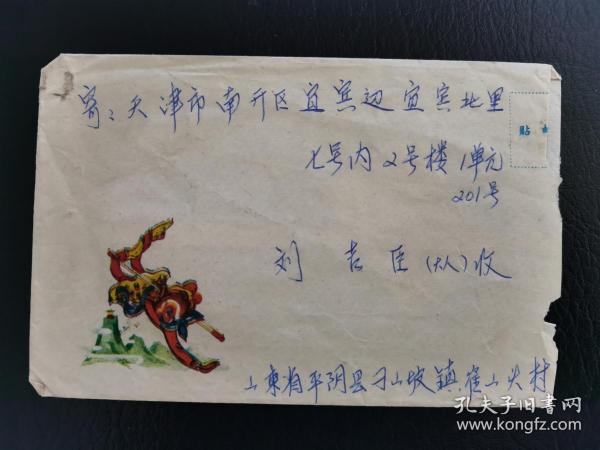 寄：天津市南开区宜宾辺宜宾北里
贴
七号内2号楼1单元
201号
刘吉臣(大人)收
山東省平阴县刁山坡鎮崔山头村
孔夫子旧书网
www.kongfz.com